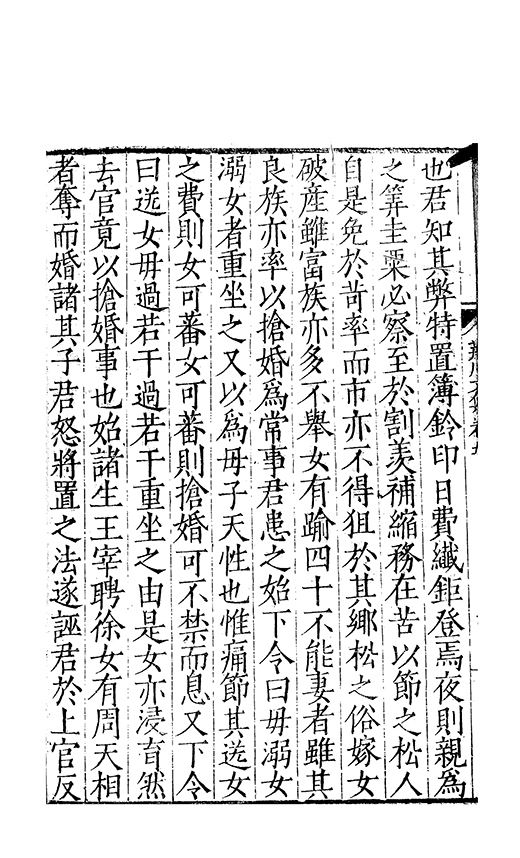 也君知其弊特置簿鈐印日費纖鉅登焉夜則親為
之筭圭粟必察至於割羨補縮務在苦以節之松人
自是免於苛率而市亦不得狙於其鄉松之俗嫁女
破産雖富族亦多不舉女有踰四十不能妻者雖其
良族亦率以搶婚爲常事君患之始下令曰毋溺女
溺女者重坐之又以爲母子天性也惟痛節其送女
之費則女可蕃女可蕃則搶婚可不禁而息又下令
曰送女毋過若干過若干重坐之由是女亦浸育然
去官竟以搶婚事也始諸生王宰聘徐女有周天相
者奪而婚諸其子君怒將置之法遂誣君於上官反